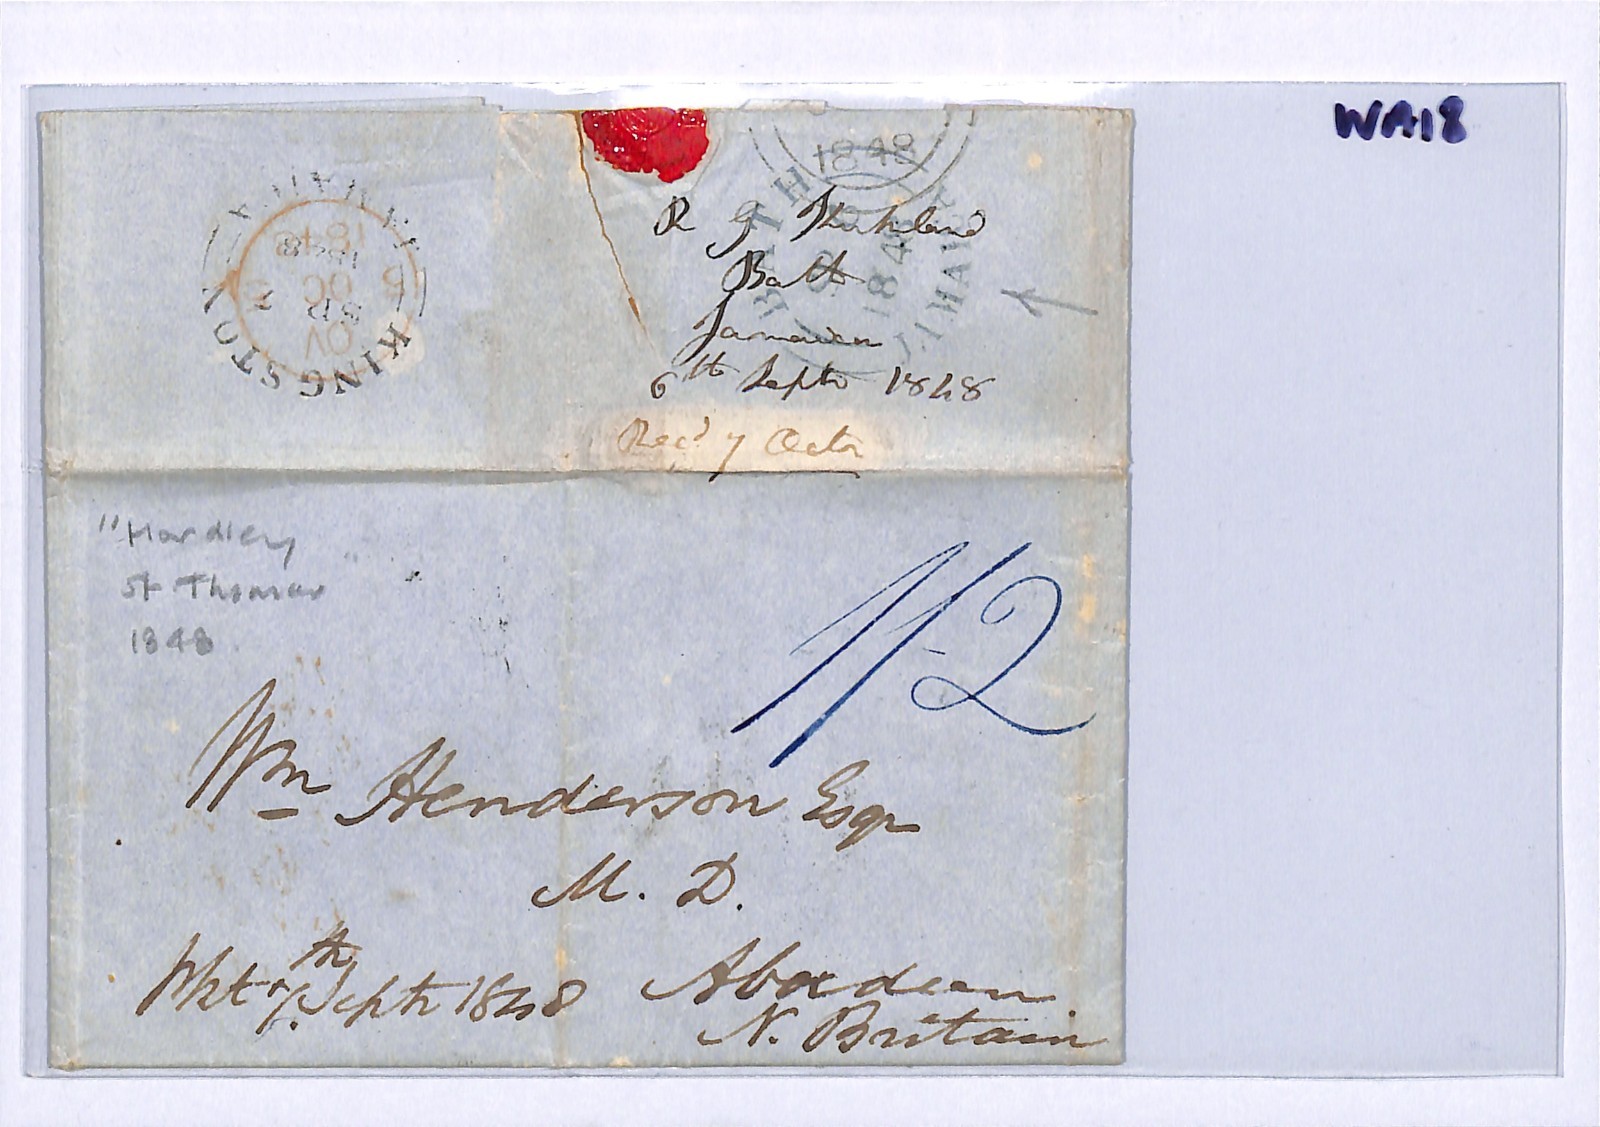 WA18
BATH
1848
JAMAICA
KINGSTON
JAMAICA
1848
OC
R G
Bath
Jamaica
6th Septr 1848
Recd 7 Octr
"Hardley"
St Thomas
1848
1/2
Wm Henderson Esqr
M. D.
Aberdeen
N. Britain
Pkt 7th Septr 1848